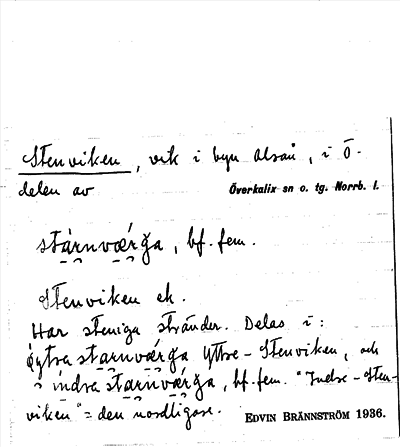 Stenviken, vik i byn Alsån, i ö-
delen av
Överkalix sn o. tg. Norrb. l.
stárnvœ́rǧa, bf. fem.
Stenviken ek.
Har steniga stränder. Delas i:
ø̨ytra starnvœ́rǧa Yttre-Stenviken, och
índra stárnvœ́rǧa, bf. fem. "Indre-Sten-
viken" = den nordligare.
EDVIN BRÄNNSTRÖM 1936.